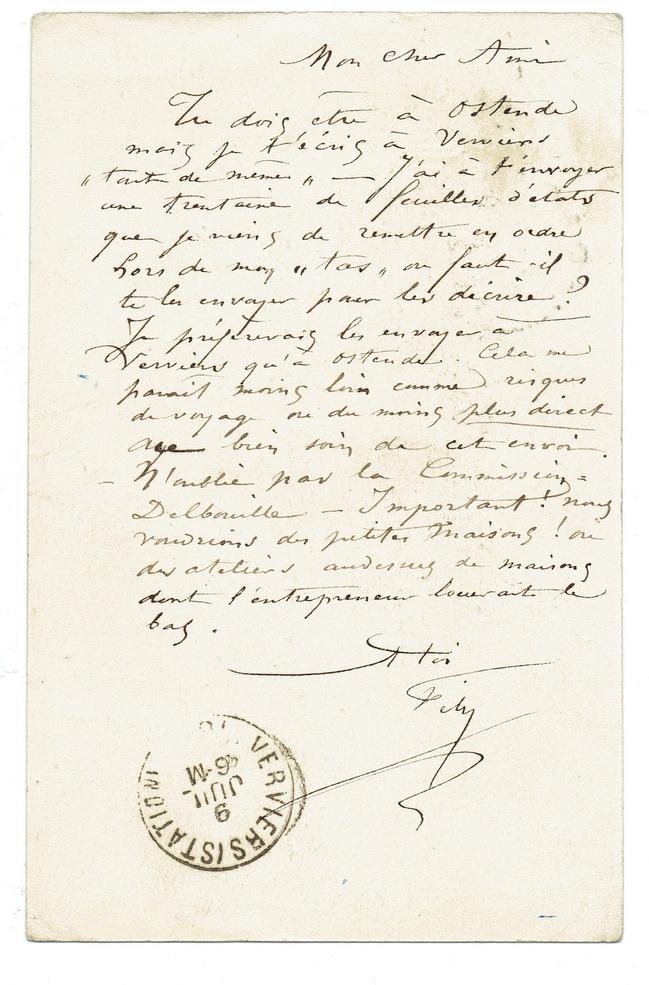 Mon cher Ami
Tu dois être à Ostende
mais je t'écris à Verviers
„tout de même„ — J'ai à t'envoyer
une trentaine de feuilles d'états
que je viens de remettre en ordre
hors de mon „tas„ où faut-il
te les envoyer pour les décrire ?
Je préférerais les envoyer à
Verviers qu'à Ostende. Cela me
paraît moins loin comme risques
de voyage ou du moins plus direct
aye bien soin de cet envoi.
– N'oublie pas la Commission=
Delbouille – Important ! nous
voudrions des petites maisons ! ou
des ateliers audessus de maisons
dont l'entrepreneur louerait le
bas.
A toi
Fély
VERVIERS (STATION)
9
JUIL
6-M